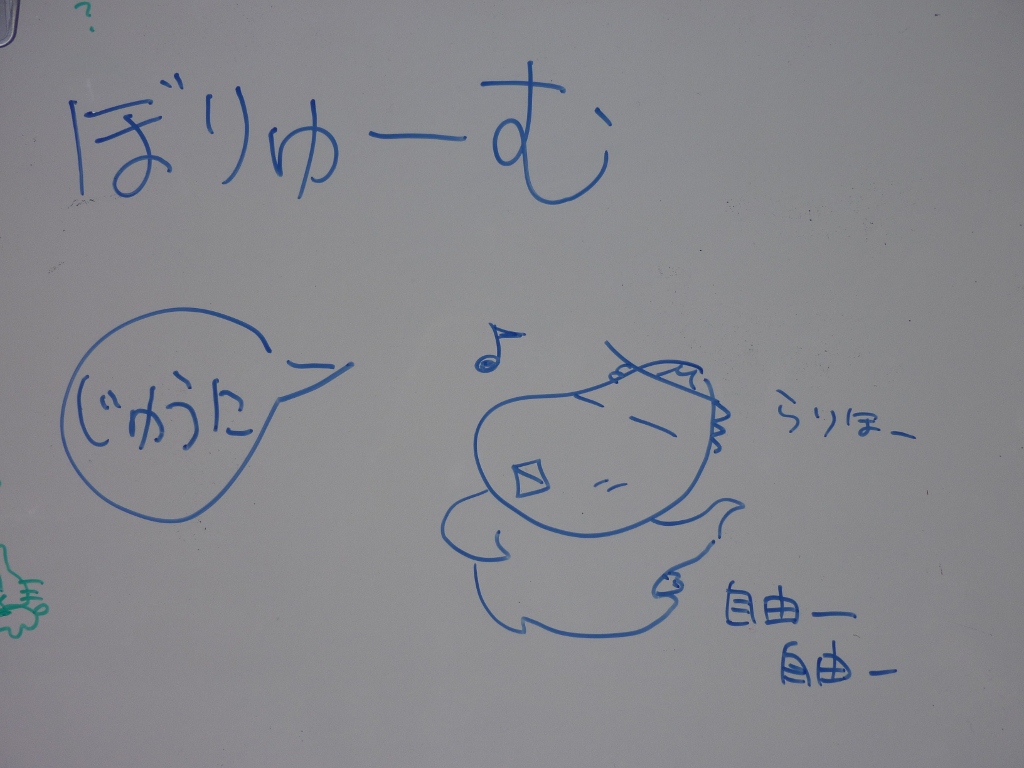 ぼりゅーむ
じゅうにー
らりほー
自由ー
自由ー
?